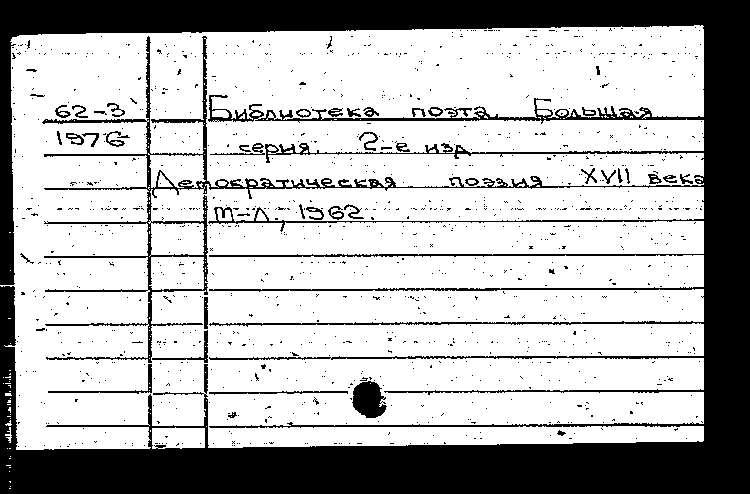 62-3 Библиотека поэта. Большая
1976 серия. 2-е изд
Демократическая поэзия XVII века
М-Л., 1962.